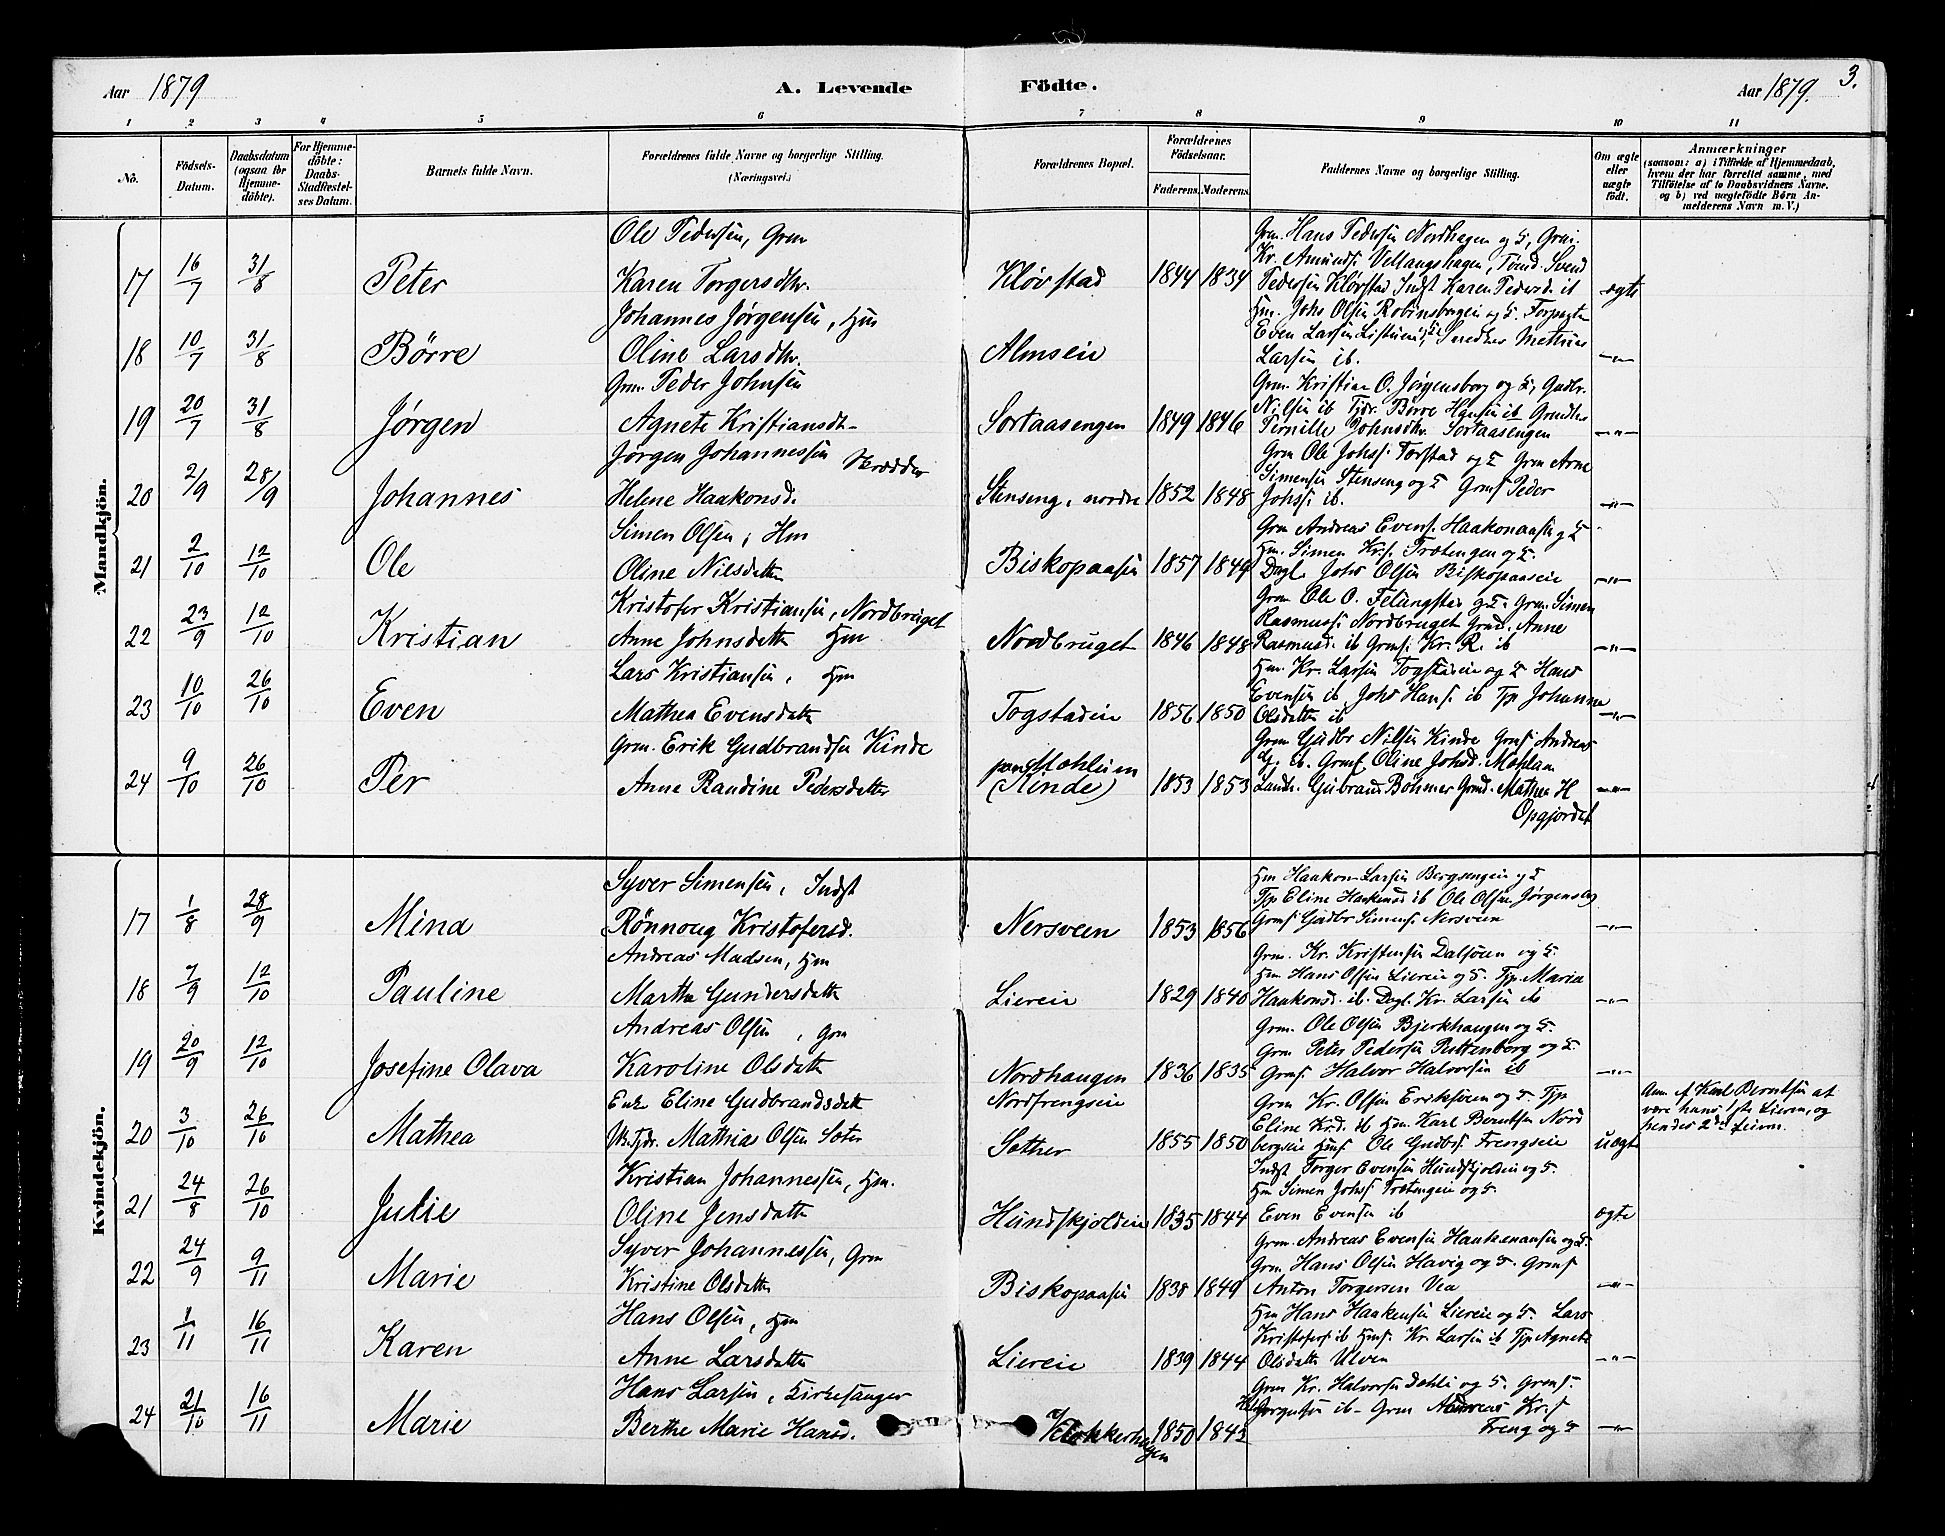 3.
Aar 1879
A. Levende
Födte.
Aar 1879.
1 2 3 4 5 6 7 8 9 10 11
No.
Födsels-
Datum.
Daabsdatum
(ogsaa for
Hjemme-
döbte).
For Hjemme-
döbte:
Daabs-
Stadfæstel-
ses Datum.
Barnets fulde Navn.
Forældrenes fulde Navne og borgerlige Stilling.
(Næringsvei.)
Forældrenes Bopæl.
Forældrenes
Födselsaar.
Faderens. Moderens.
Faddernes Navne og borgerlige Stilling.
Om ægte
eller
uægte
födt.
Anmærkninger
(saasom: a) i Tilfælde af Hjemmedaab,
hvem der har forrettet samme, med
Tilföielse af to Daabsvidners Navne,
og b) ved uægtefödte Börn An-
melderens Navn m. V.)
Mandkjön.
17 16/7 31/8 Peter
Ole Pedersen, Grm
Karen Torgersdtr.
Kløvstad 1844 1834
Grm. Hans Pedersen Nordhagen og H, Grm.
Kr. Amunds. Vellangshagen, Tømd. Svend
Pedersen Kløvstad Indst Karen Pedersd. ib
ægte
18 10/7 31/8 Börre
Johannes Jørgensen, Hm
Oline Larsdtr.
Almseie
Hm. Johs Olsen Robinsborgen og H. Forpagter
Even Larsen Mathias
Larsen ib.
—"—
19 20/7 31/8 Jørgen
Grm. Peder Johnsen
Agnete Kristiansdtr
Sortaasengen 1849 1846
Grm. Kristian O. Jørgensborg og H, Gudbr.
Nilsen ib Tjdr. Börre Hansen ib
Pernille Johnsdtr. Sortaasengen
—"—
20 2/9 28/9 Johannes
Jørgen Johannessen Skrædder
Helene Haakonsd.
Stenseng, nordre 1852 1848
Grm Ole Johs. Torstad og H Grm Arne
Simensen Stenseng og H Grms. Peder
Johs. ib.
—"—
21 2/10 12/10 Ole
Simen Olsen, Hm
Oline Nilsdatter
Biskopaasen 1857 1849
Grm Andreas Evens. Haakonaasen og H
Hm. Simen Krs. Trætengen og H.
Dagl. Johs Olsen Biskopaaseie
—"—
22 23/9 12/10 Kristian
Kristofer Kristiansen, Nordbruget
Anne Johnsdatter Hm
Nordbruget 1846 1848
Grm Ole O. og H. Grm. Simen
Rasmuss. Nordbruget Grmd. Anne
Rasmusd. ib Grms. Kr. R. ib
—"—
23 10/10 26/10 Even
Lars Kristiansen, Hm
Mathea Evensdatter
Togstadeie 1856 1850
Hm. Kr. Larsen Togstadeie og H Hans
Evensen ib Johs Hans. ib Tjp Johanne
Olsdatter ib
—"—
24 9/10 26/10 Per
Grm. Erik Gudbrandsen Kinde
Anne Randine Pedersdatter
Mæhlum
(Kinde) 1853 1853
Grm Gudbr Nilsen Kinde Grms. Andreas
G. ib. Grmd Oline Johsd. Mæhlum
Landh. Gubrand Böhmer Grmd. Mathea H
Opgjordet
—"—
Kvindekjön.
17 1/8 28/9 Mina
Syver Simensen, Indst
Rönnoug Kristofersd.
Nersveen 1853 1856
Hm Haakon Larsen Bergsengen og H
Tjp Eline Haakensd ib Ole Olsen Jørgensbg
Grms. Gudbr Simens. Nersveen
—"—
18 7/9 12/10 Pauline
Andreas Madsen, Hm
Marthe Gundersdatter
Liereie 1829 1840
Grm. Kr. Kristensen Dalsveen og H.
Hm Hans Olsen Liereie og H. Tjp Maria
Haakonsd. ib. Dagl. Kr. Larsen ib
—"—
19 20/9 12/10 Josefine Olava
Andreas Olsen, Grm
Karoline Olsdatter
Nordhaugen 1836 1835
Grm. Ole Olsen Bjerkhaugen og H.
Grm Peter Pedersen Pottenborg og H.
Grms. Halvor Halvorsen ib
—"—
20 3/10 26/10 Mathea
Enke Eline Gudbrandsdatter
Ukftjdr. Mathias Olsen Sæter
Nordfrengseie
Sæther 1855 1850
Grm Kr. Olsen Eriksveen og H, Tjp
Eline Krd. ib Hm. Karl Berntsen Nord
bergseie Hms. Ole Gudbs. Frengseie
uægte
Anm. af Karl Berntsen at
være hans 1ste Lierem. og
hendes 2den Leierm.
21 24/8 26/10 Julie
Kristian Johannessen, Hm.
Oline Jensdatter
Hundskjoldeie 1835 1844
Indst Torger Evensen Hundskjoldeie og H.
Hm Simen Johs. Trætengeie og H.
Even Evensen ib
ægte
22 24/9 9/11 Marie
Syver Johannessen, Grm
Kristine Olsdatter
Biskopaasen 1838 1849
Grm. Andreas Evensen Haakenaasen og H.
Grm. Hans Olsen Havig og H. Grms
Anton Torgersen Vea
—"—
23 1/11 16/11 Karen
Hans Olsen, Hm
Anne Larsdatter
Liereie 1839 1844
Hm Hans Haakensen Liereie og H. Lars
Kristofers. ib Hms. Kr. Larsen ib Tjp Agnete
Olsdatter Ulven
—"—
24 21/10 16/11 Marie
Hans Larsen, Kirkesanger
Berthe Marie Hansd.
Klokkerhagen 1850 1842
Grm Kr. Halvorsen Dæhli og H. Grms.
ib - Grm Andreas Kr.s
Freng og H
—"—